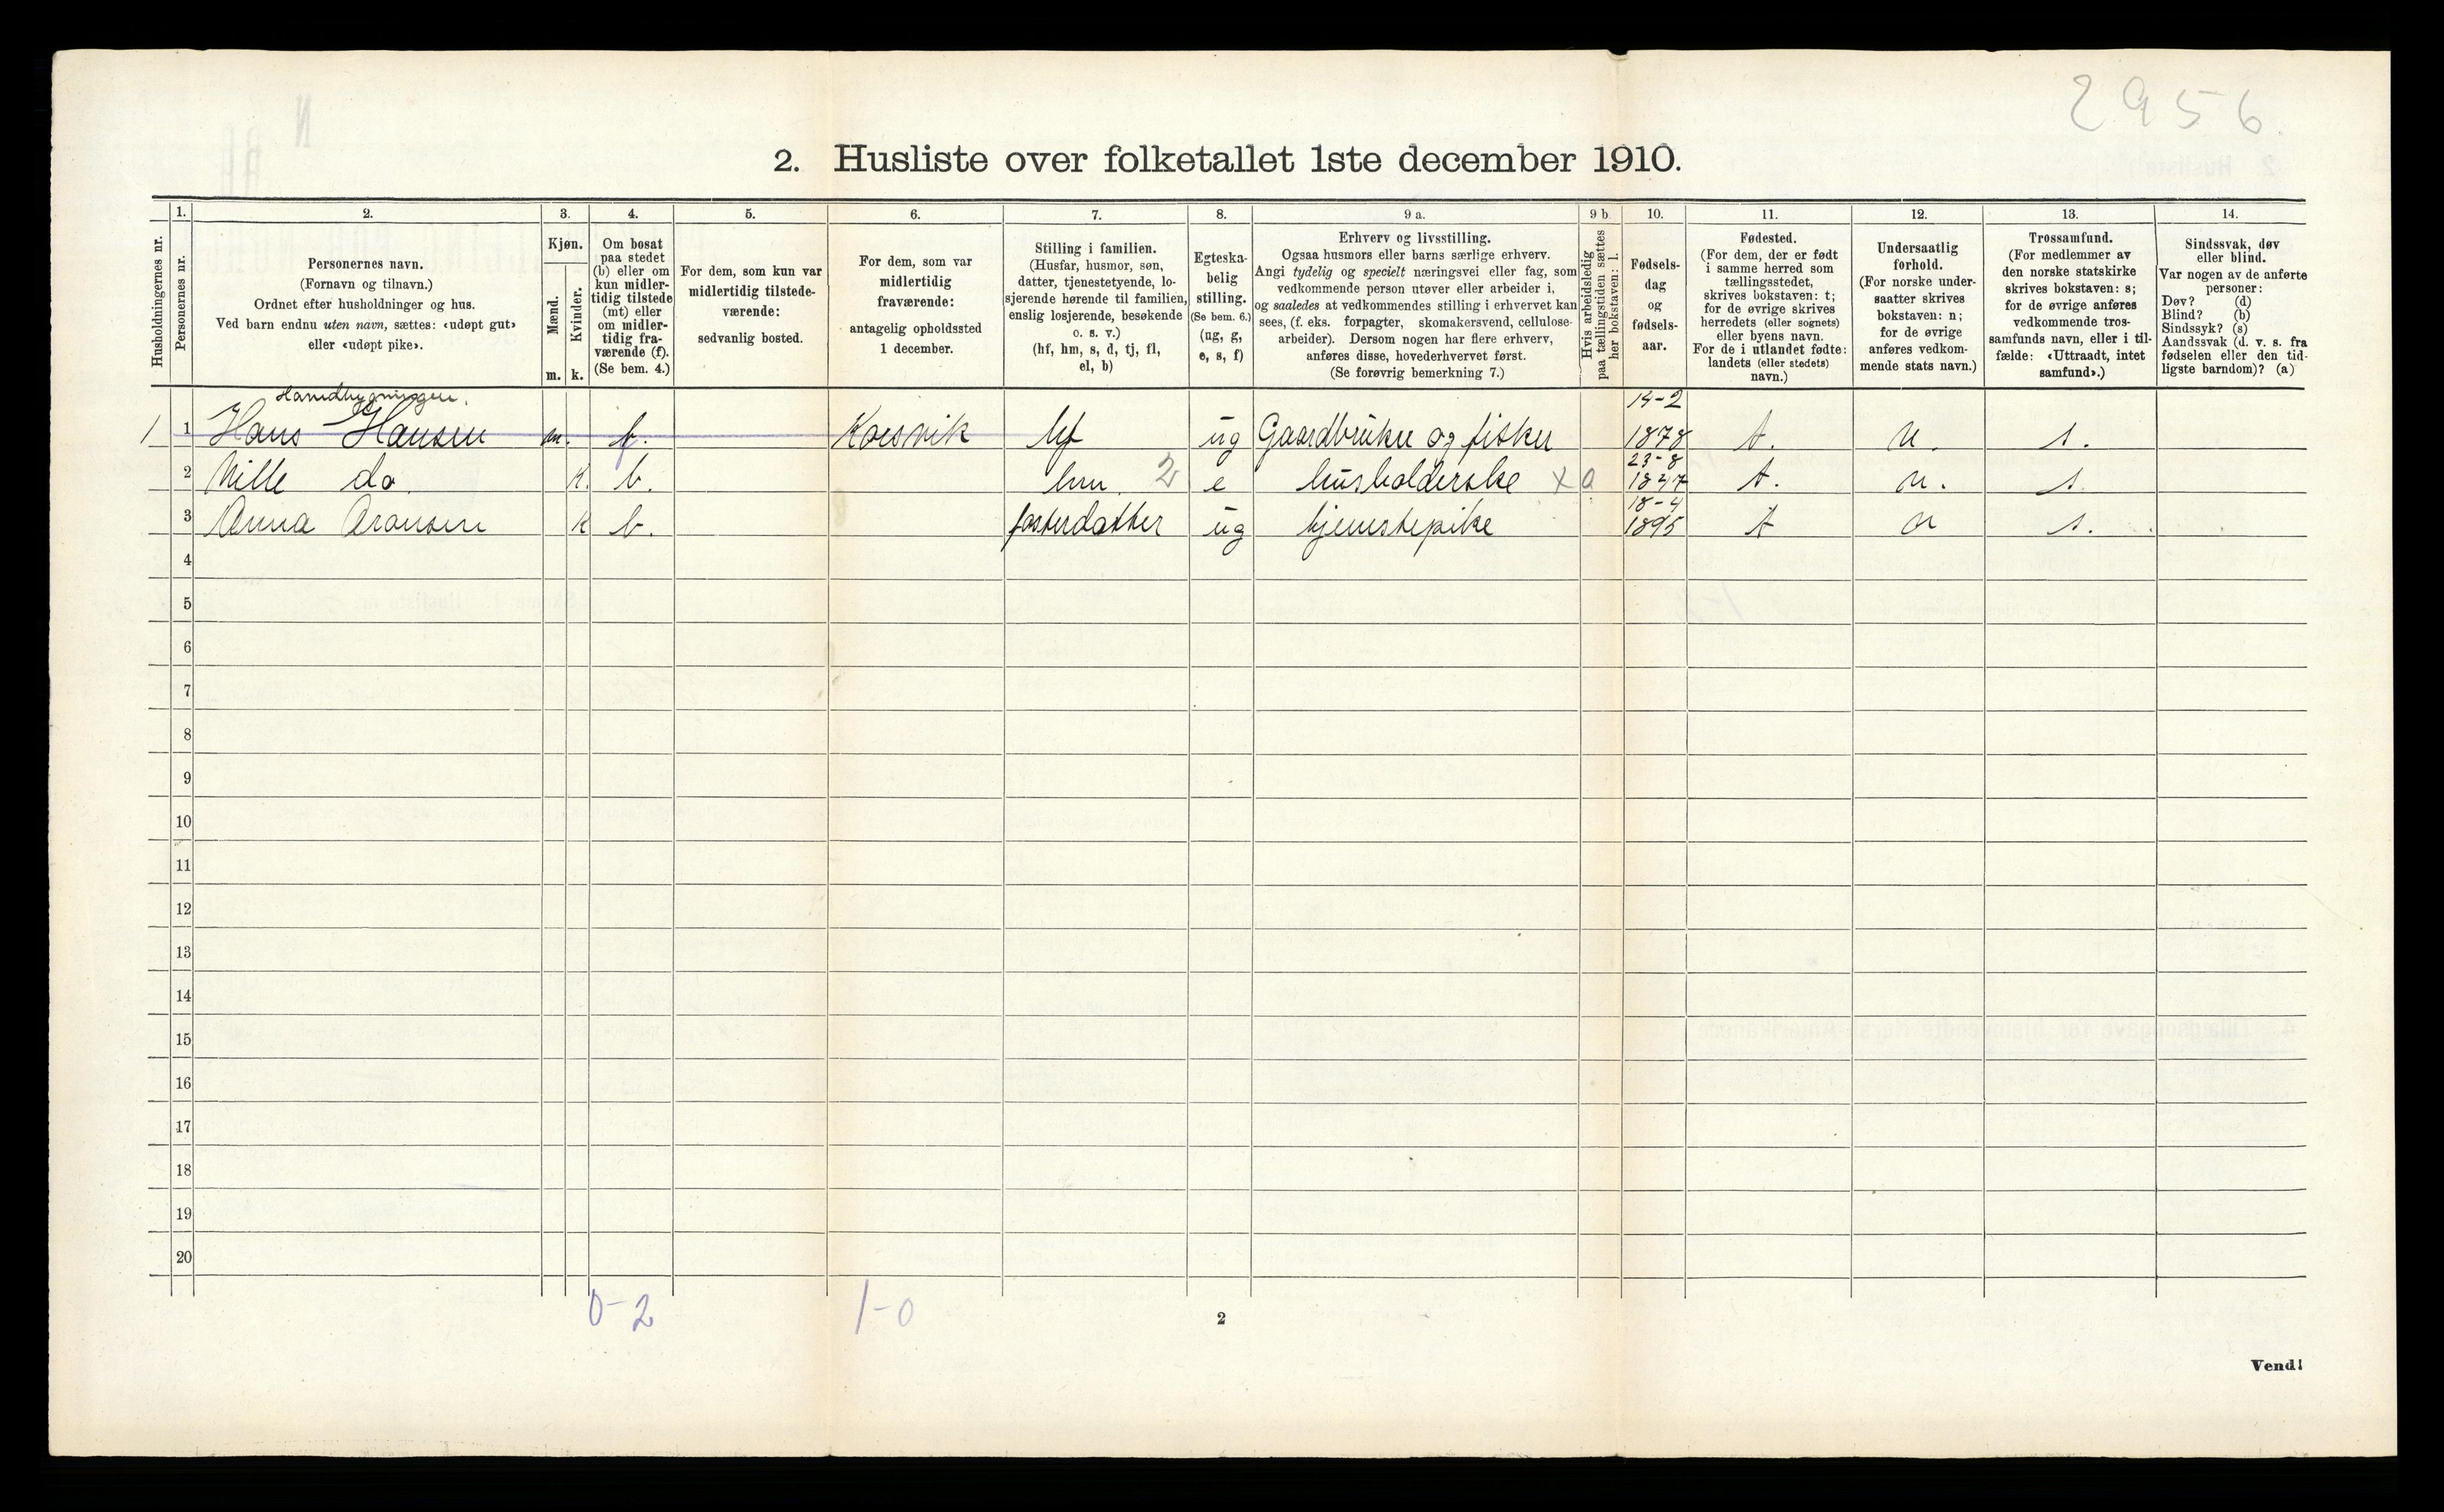 2956.
2. Husliste over folketallet 1ste december 1910.
Husholdningernes nr.
1.
Personernes nr.
2.
Personernes navn.
(Fornavn og tilnavn.)
Ordnet efter husholdninger og hus.
Ved barn endnu uten navn, sættes: «udøpt gut»
eller «udøpt pike».
3.
Kjøn.
Mænd.
Kvinder.
m. k.
4.
Om bosat
paa stedet
(b) eller om
kun midler-
tidig tilstede
(mt) eller
om midler-
tidig fra-
værende (f).
(Se bem. 4.)
5.
For dem, som kun var
midlertidig tilstede-
værende:
sedvanlig bosted.
6.
For dem, som var
midlertidig
fraværende:
antagelig opholdssted
1 december.
7.
Stilling i familien.
(Husfar, husmor, søn,
datter, tjenestetyende, lo-
sjerende hørende til familien,
enslig losjerende, besøkende
o. s. v.)
(hf, hm, s, d, tj, fl,
el, b)
8.
Egteska-
belig
stilling.
(Se bem. 6.)
(ug, g,
e, s, f)
9 a.
Erhverv og livsstilling.
Ogsaa husmors eller barns særlige erhverv.
Angi tydelig og specielt næringsvei eller fag, som
vedkommende person utøver eller arbeider i,
og saaledes at vedkommendes stilling i erhvervet kan
sees, (f. eks. forpagter, skomakersvend, cellulose-
arbeider). Dersom nogen har flere erhverv,
anføres disse, hovederhvervet først.
(Se forøvrig bemerkning 7.)
9 b.
Hvis arbeidsledig
paa tællingstiden sættes
her bokstaven: l.
10.
Fødsels-
dag
og
fødsels-
aar.
11.
Fødested.
(For dem, der er født
i samme herred som
tællingsstedet,
skrives bokstaven: t;
for de øvrige skrives
herredets (eller sognets)
eller byens navn.
For de i utlandet fødte:
landets (eller stedets)
navn.)
12.
Undersaatlig
forhold.
(For norske under-
saatter skrives
bokstaven: n;
for de øvrige
anføres vedkom-
mende stats navn.)
13.
Trossamfund.
(For medlemmer av
den norske statskirke
skrives bokstaven: s;
for de øvrige anføres
vedkommende tros-
samfunds navn, eller i til-
fælde: «Uttraadt, intet
samfund».)
14.
Sindssvak, døv
eller blind.
Var nogen av de anførte
personer:
Døv? (d)
Blind? (b)
Sindssyk? (s)
Aandssvak (d. v. s. fra
fødselen eller den tid-
ligste barndom)? (a)
1 1 Hans Hansen m. f. hf ug Gaardbruker og fisker 14-2 1878 t. n. s.
2 do. k. b. hm. 2 e husholderske x 0 23-8 1847 t. n. s.
3 Anna Aronsen k b. fosterdatter ug tjenestepike 18-4 1895 t n s.
4
5
6
7
8
9
10
11
12
13
14
15
16
17
18
19
20
0-2 1-0
2
Vend!